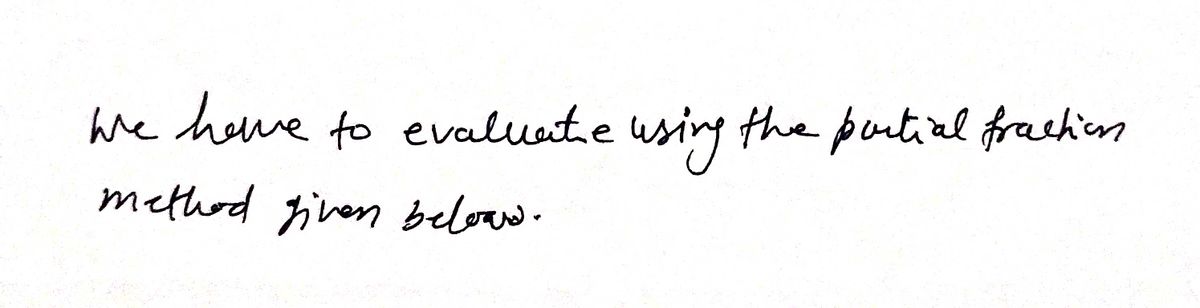 We have to evaluate using the partial fraction
method given below.